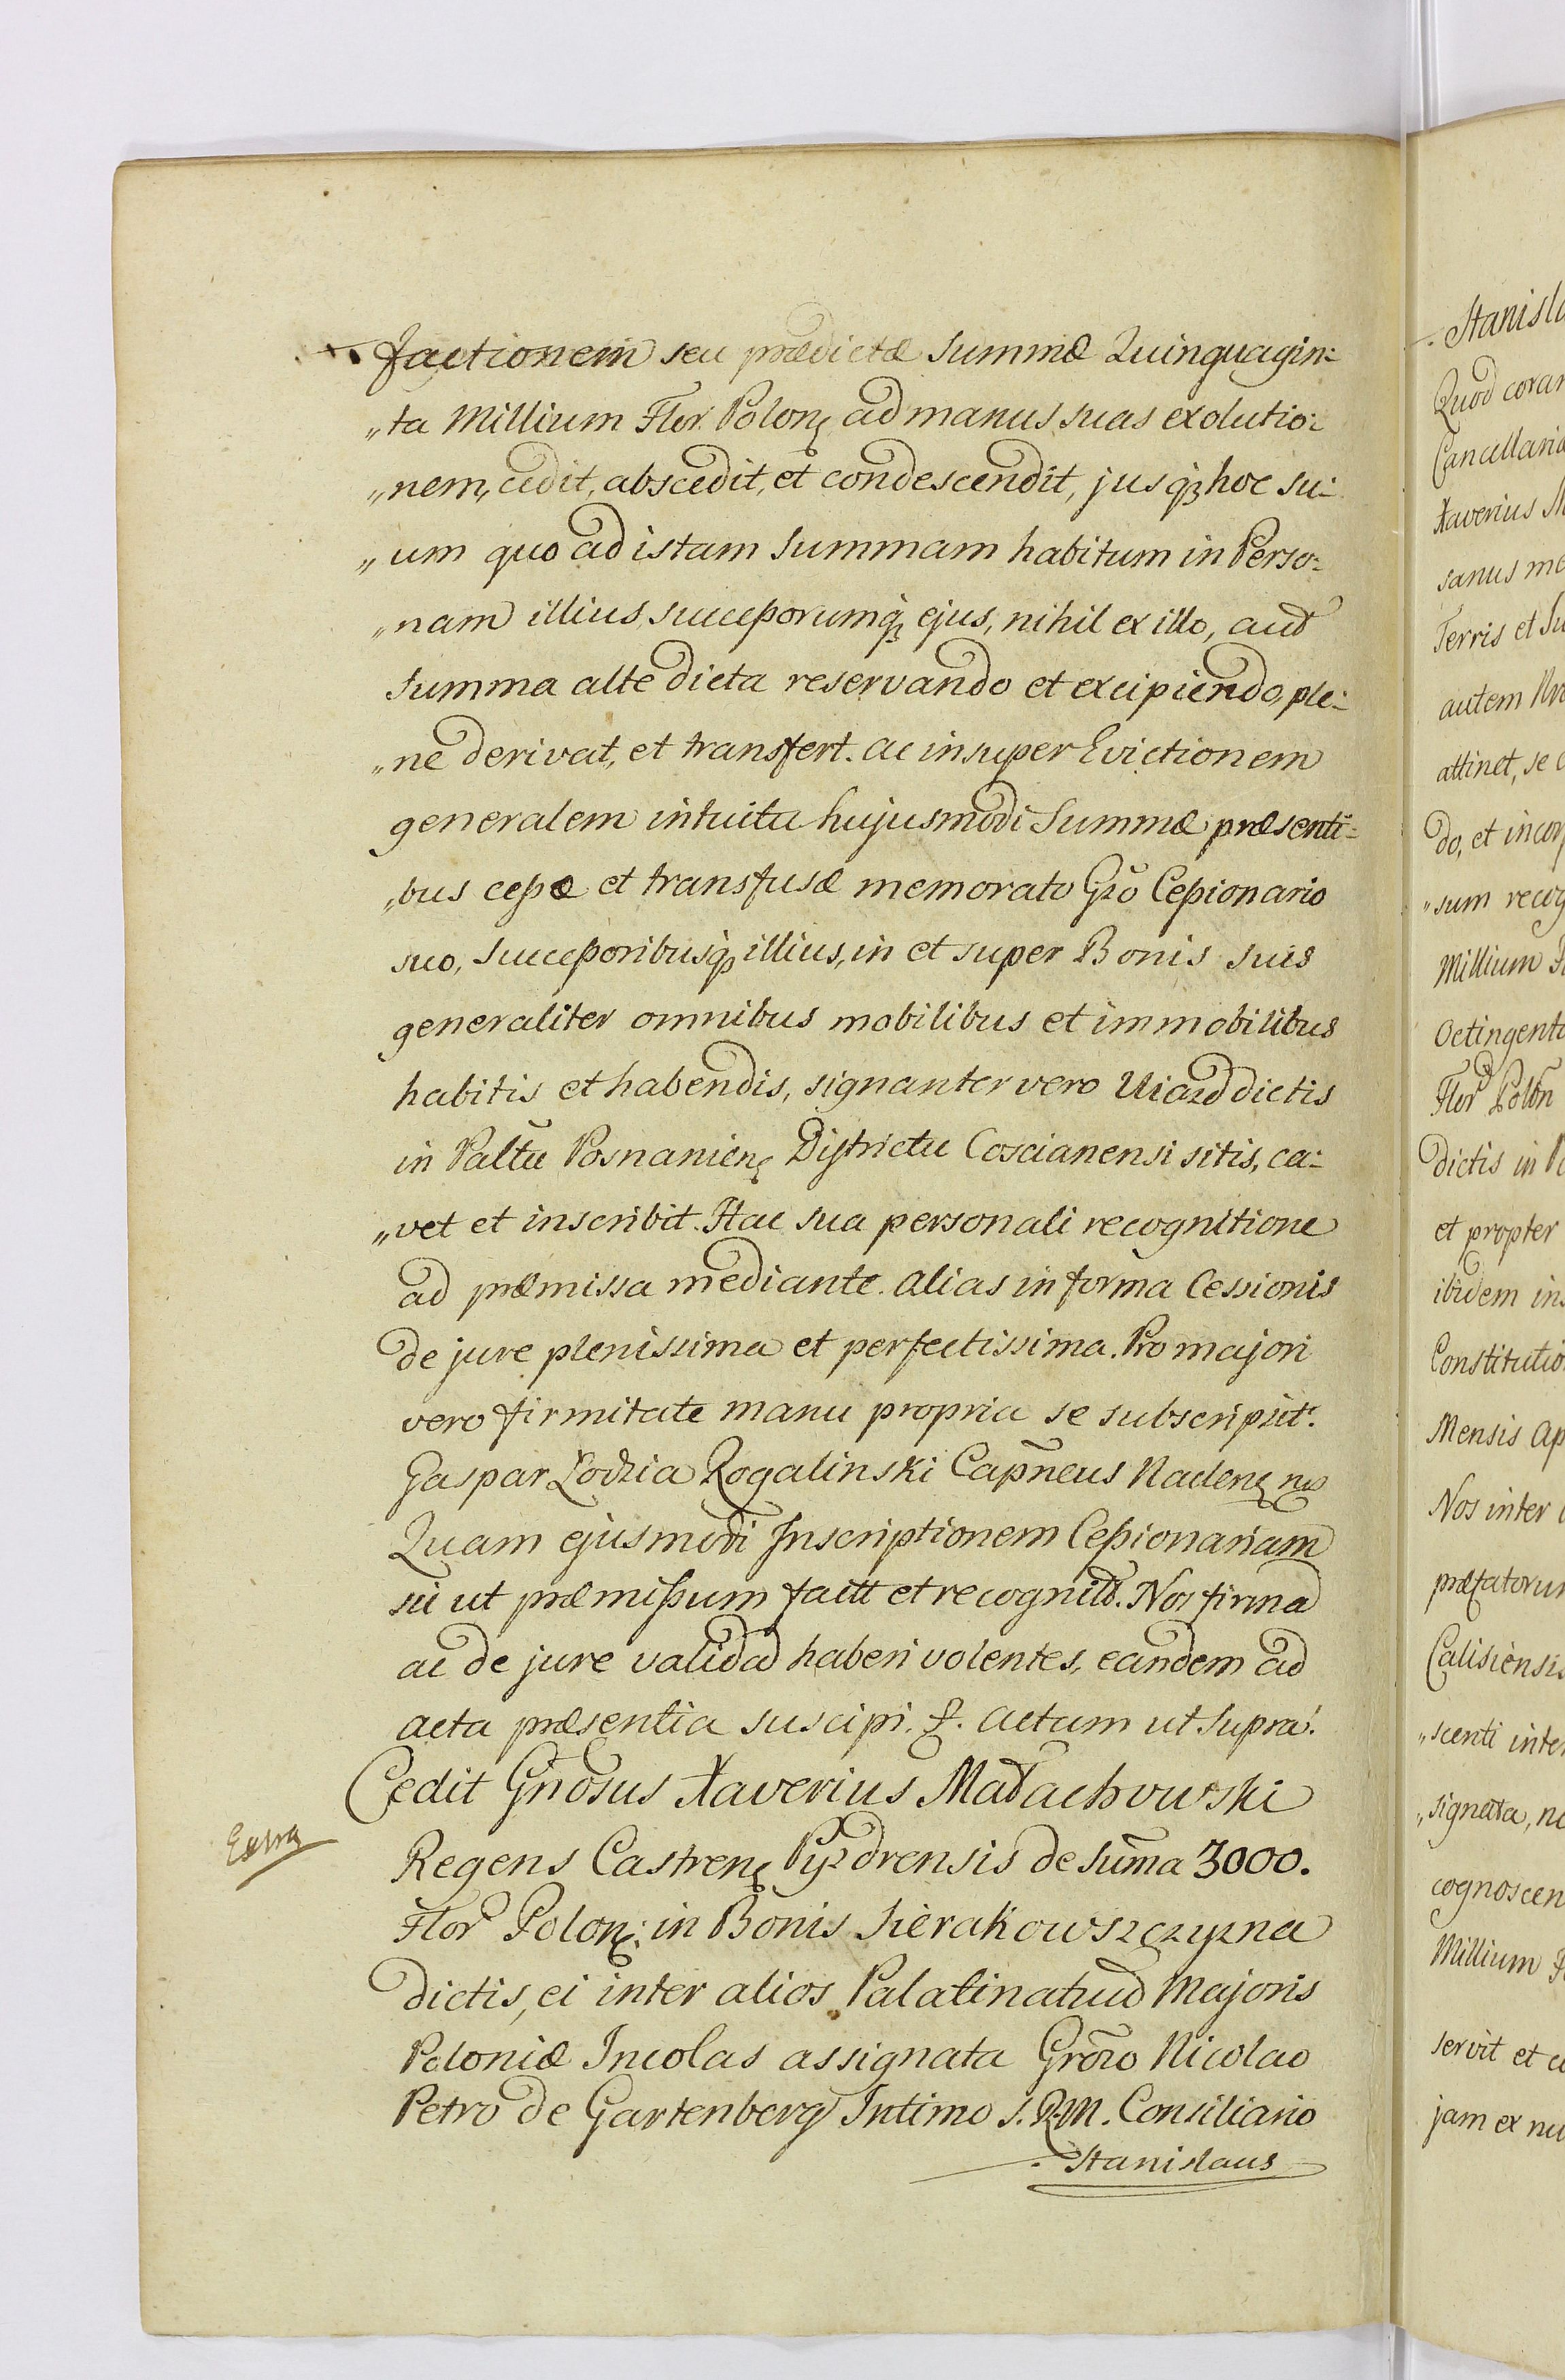 factionem seu prædictæ Summæ Quinquagin:
„ta Millium Flor. Polon: ad manus suas exolutio:
„nem, cedit, abscedit, et condescendit, jusq; hoc su:
„um quo ad istam Summam habitum in Perso:
„nam illius, successorumq; ejus, nihil ex illo, aut
Summa alte dicta reservando et excipiendo, ple:
„ne derivat, et transfert. ac insuper Evictionem
generalem intuitu hujusmodi Summæ præsenti:
„bus cessæ et transfusæ memorato Gžo Cessionario
suo, Successoribusq; illius, in et super Bonis suis
generaliter omnibus mobilibus et immobilibus
habitis et habendis, signanter vero Uiazd dictis
in Paltũ Posnanien: Districtu Coscianensi sitis, ca:
„vet et inscribit. Hac sua personali recognitione
ad præmissa mediante. alias in forma Cessionis
de jure plenissima et perfectissima. Pro majori
vero firmitate manu propria se subscripsit.
Gaspar Łodzia Rogalinski Capñeus Naclen: mp
Quam ejusmodi Inscriptionem Cessionariam
sii ut præmissum facit et recognit. Nos firma
ac de jure valida haberi volentes, eandem ad
acta præsentia suscipi. f. actum ut Supra.
Cedit Gñosus Xaverius Małachowski
Extra
Regens Castren: Pyzdrensis de Sum̃a 3000.
Flor Polon: in Bonis Sierakowszczyzna
dictis, ei inter alios Palatinatus Majoris
Poloniæ Incolas assignata Grõzo Nicolao
Petro de Gartenberg Intimo S. R. M. Consiliario
Stanislaus
. Stanisla
Quod coram
Cancellaria
Xaverius M
sanus me
Terris et Su
autem
attinet, se
do, et incor
„sum recog
Millium F
Octingento
Flor Polõn
dictis in
et propter
ibidem ins
Constitutio
Mensis Ap
Nos inter
præfatorum
Calisiensis
„scenti inter
„signata, ne
cognoscen
Millium F
servit et
jam ex nu